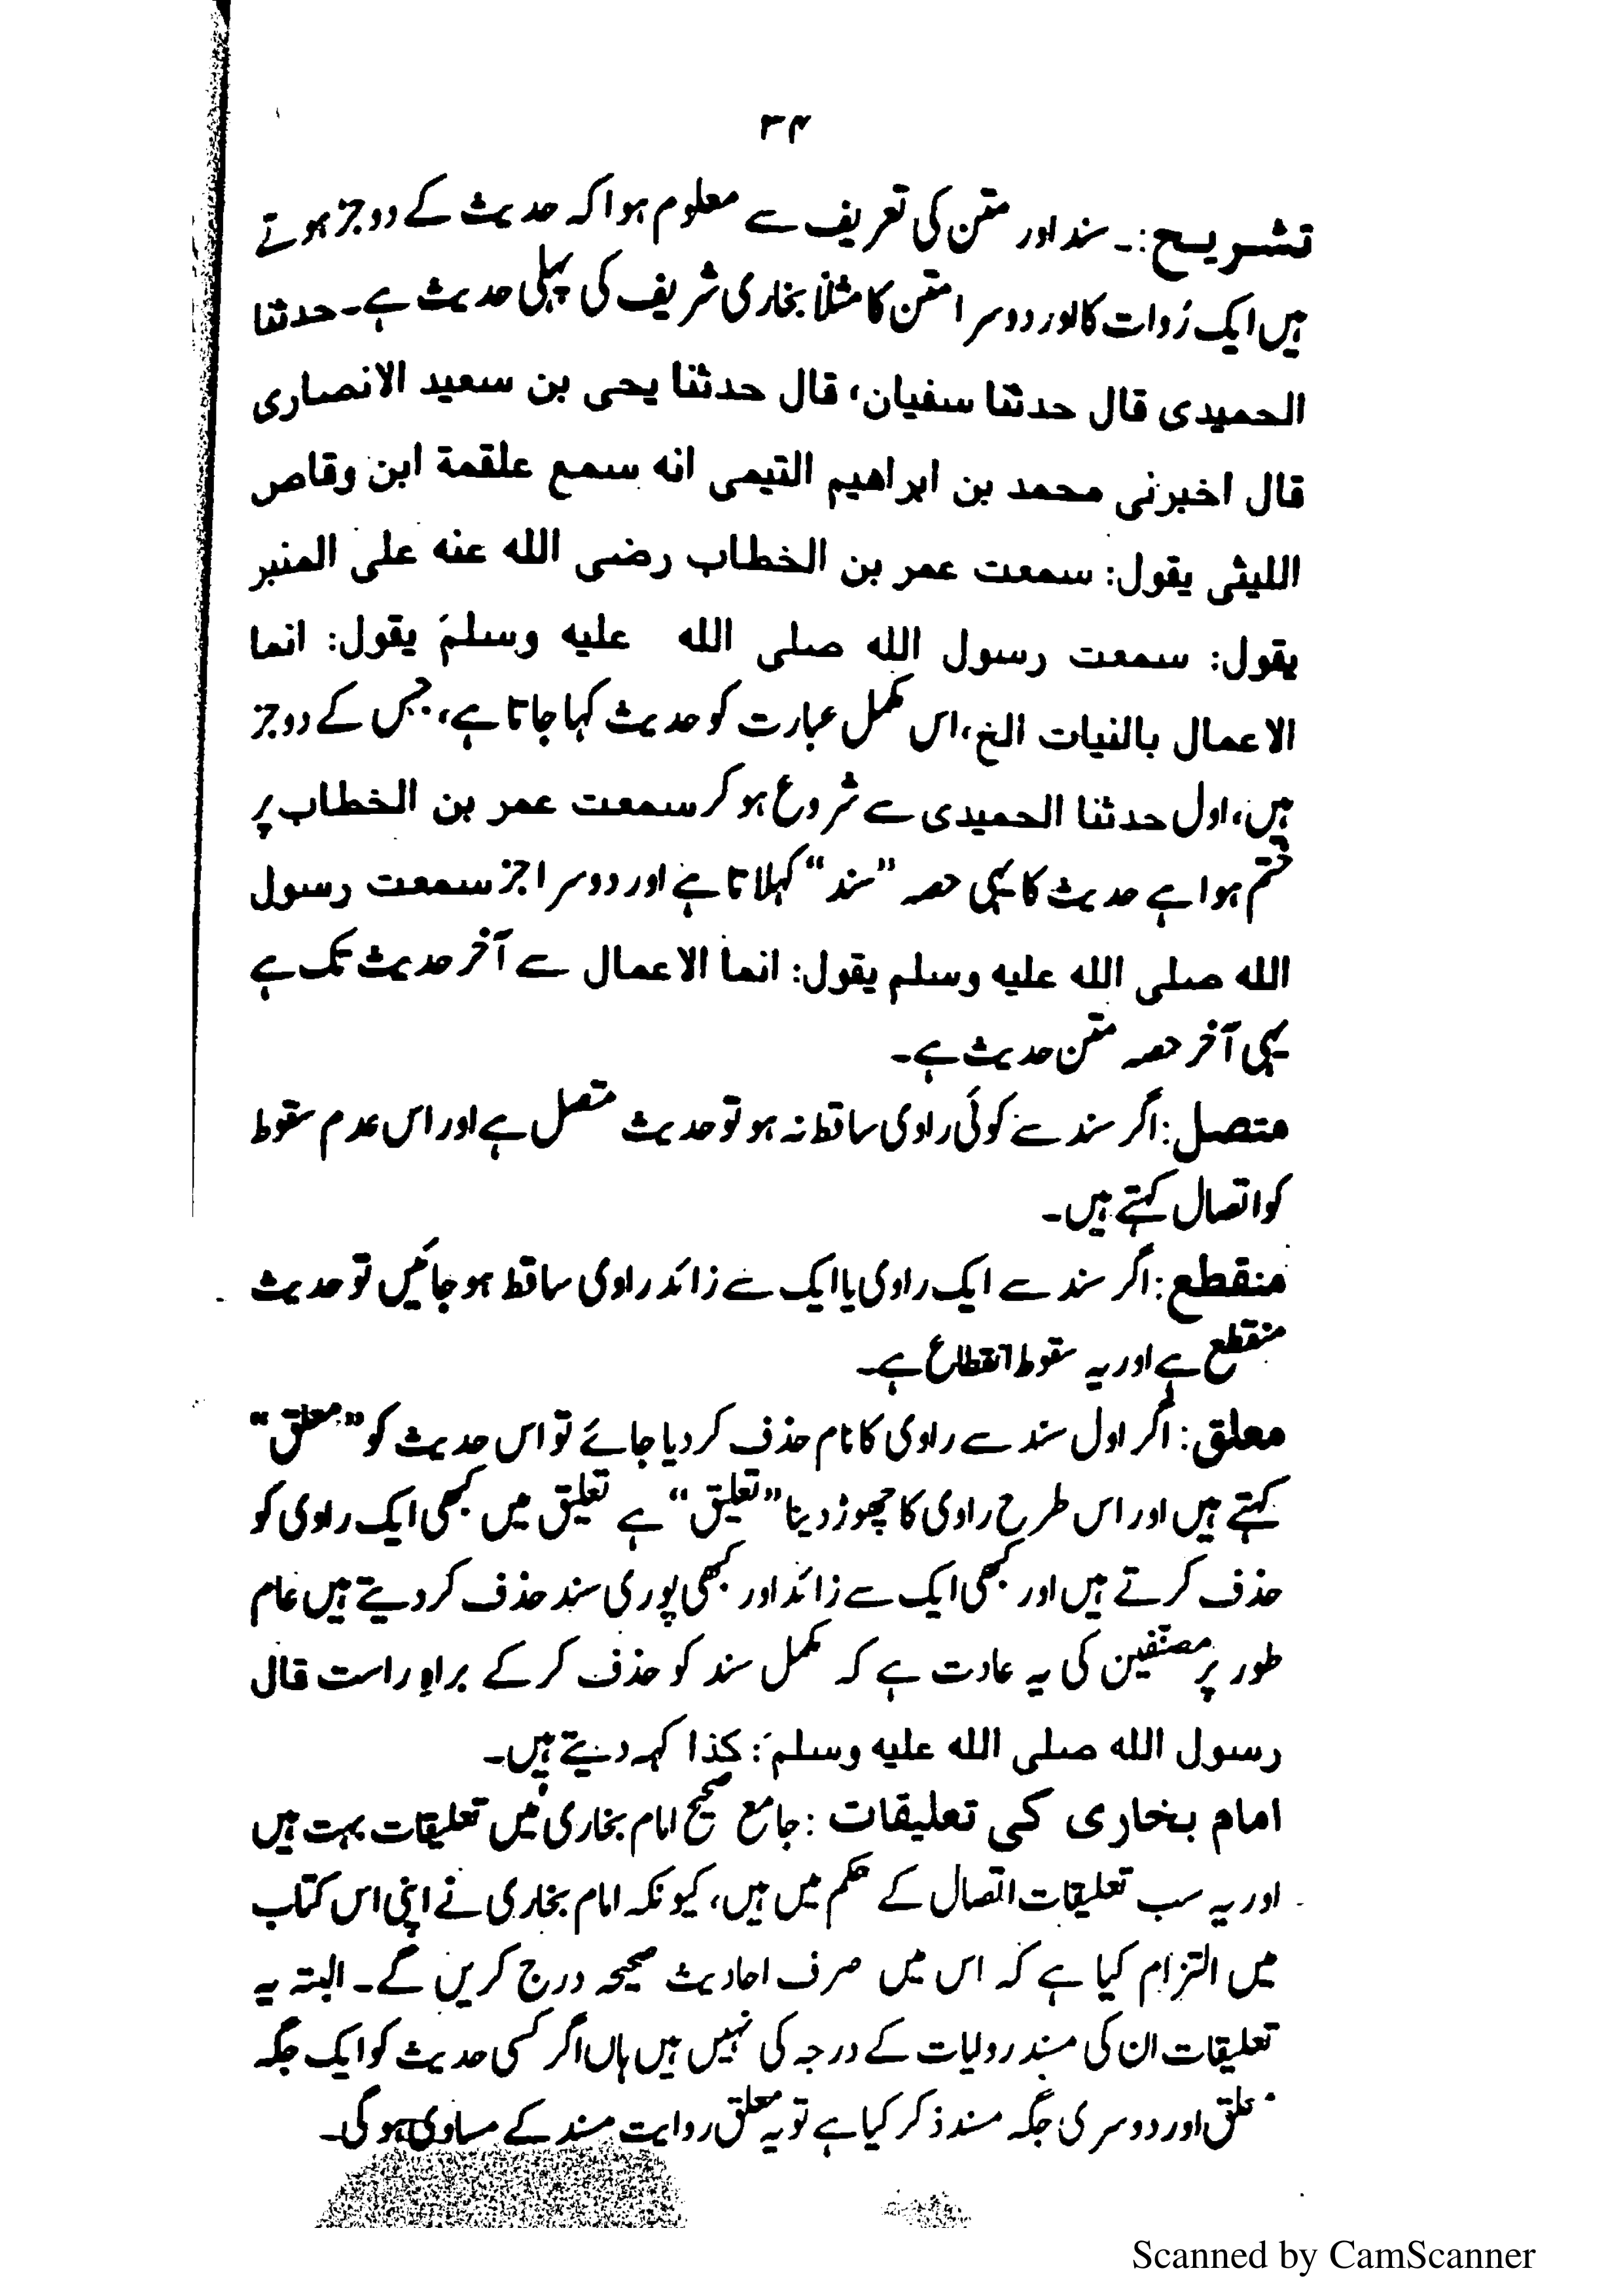 ۳۴
تشریح:۔ سند اور متن کی تعریف سے معلوم ہوا کہ حدیث کے دو جز ہوتے
ہیں ایک رُوات کا اور دوسرا متن کا مثلاً بخاری شریف کی پہلی حدیث ہے۔ حدثنا
الحمیدی قال حدثنا سفیان، قال حدثنا یحی بن سعید الانصاری
قال اخبرنی محمد بن ابراھیم التیمی انه سمع علقمة ابن وقاص
اللیثی یقول: سمعت عمر بن الخطاب رضی الله عنه علی المنبر
یقول: سمعت رسول الله صلی الله علیه وسلم یقول: انما
الاعمال بالنیات الخ، اس مکمل عبارت کو حدیث کہا جاتا ہے، جس کے دو جز
ہیں، اول حدثنا الحمیدی سے شروع ہو کر سمعت عمر بن الخطاب پر
ختم ہوا ہے حدیث کا یہی حصہ ”سند“ کہلاتا ہے اور دوسرا جز سمعت رسول
الله صلی الله علیه وسلم یقول: انما الاعمال سے آخر حدیث تک ہے
یہی آخر حصہ متن حدیث ہے۔
متصل: اگر سند سے کوئی راوی ساقط نہ ہو تو حدیث متصل ہے اور اس عدم سقوط
کو اتصال کہتے ہیں۔
منقطع: اگر سند سے ایک راوی یا ایک سے زائد راوی ساقط ہو جائیں تو حدیث
منقطع ہے اور یہ سقوط انقطاع ہے۔
معلق: اگر اول سند سے راوی کا نام حذف کر دیا جائے تو اس حدیث کو ”معلق“
کہتے ہیں اور اس طرح راوی کا چھوڑ دینا ”تعلیق“ ہے تعلیق میں کبھی ایک راوی کو
حذف کرتے ہیں اور کبھی ایک سے زائد اور کبھی پوری سند حذف کر دیتے ہیں عام
طور پر مصنفین کی یہ عادت ہے کہ مکمل سند کو حذف کر کے براہِ راست قال
رسول الله صلی الله علیه وسلم: کذا کہہ دیتے ہیں۔
امام بخاری کی تعلیقات: جامع صحیح امام بخاری میں تعلیقات بہت ہیں
اور یہ سب تعلیقات اتصال کے حکم میں ہیں، کیونکہ امام بخاری نے اپنی اس کتاب
میں التزام کیا ہے کہ اس میں صرف احادیث صحیحہ درج کریں گے۔ البتہ یہ
تعلیقات ان کی مسند روایات کے درجہ کی نہیں ہیں ہاں اگر کسی حدیث کو ایک جگہ
معلق اور دوسری جگہ مسند ذکر کیا ہے تو یہ معلق روایت مسند کے مساوی ہوگی۔
Scanned by CamScanner